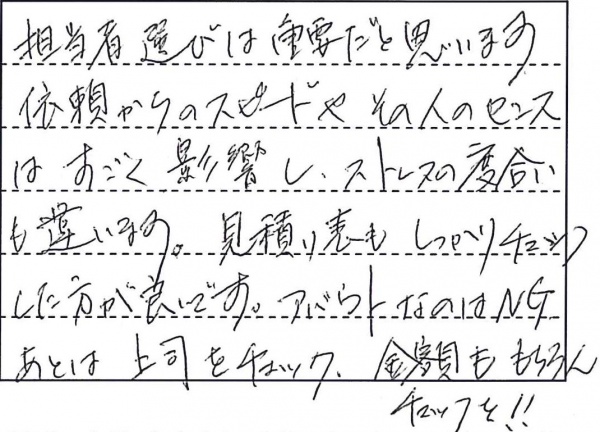 担当者選びは重要だと思います
依頼からのスピードや その人のセンス
は すごく 影響し、ストレスの度合い
も違います。見積り表も しっかりチェック
した方が良いです。アバウトなのはNG.
あとは 上司をチェック、金額も もちろん
チェックを!!